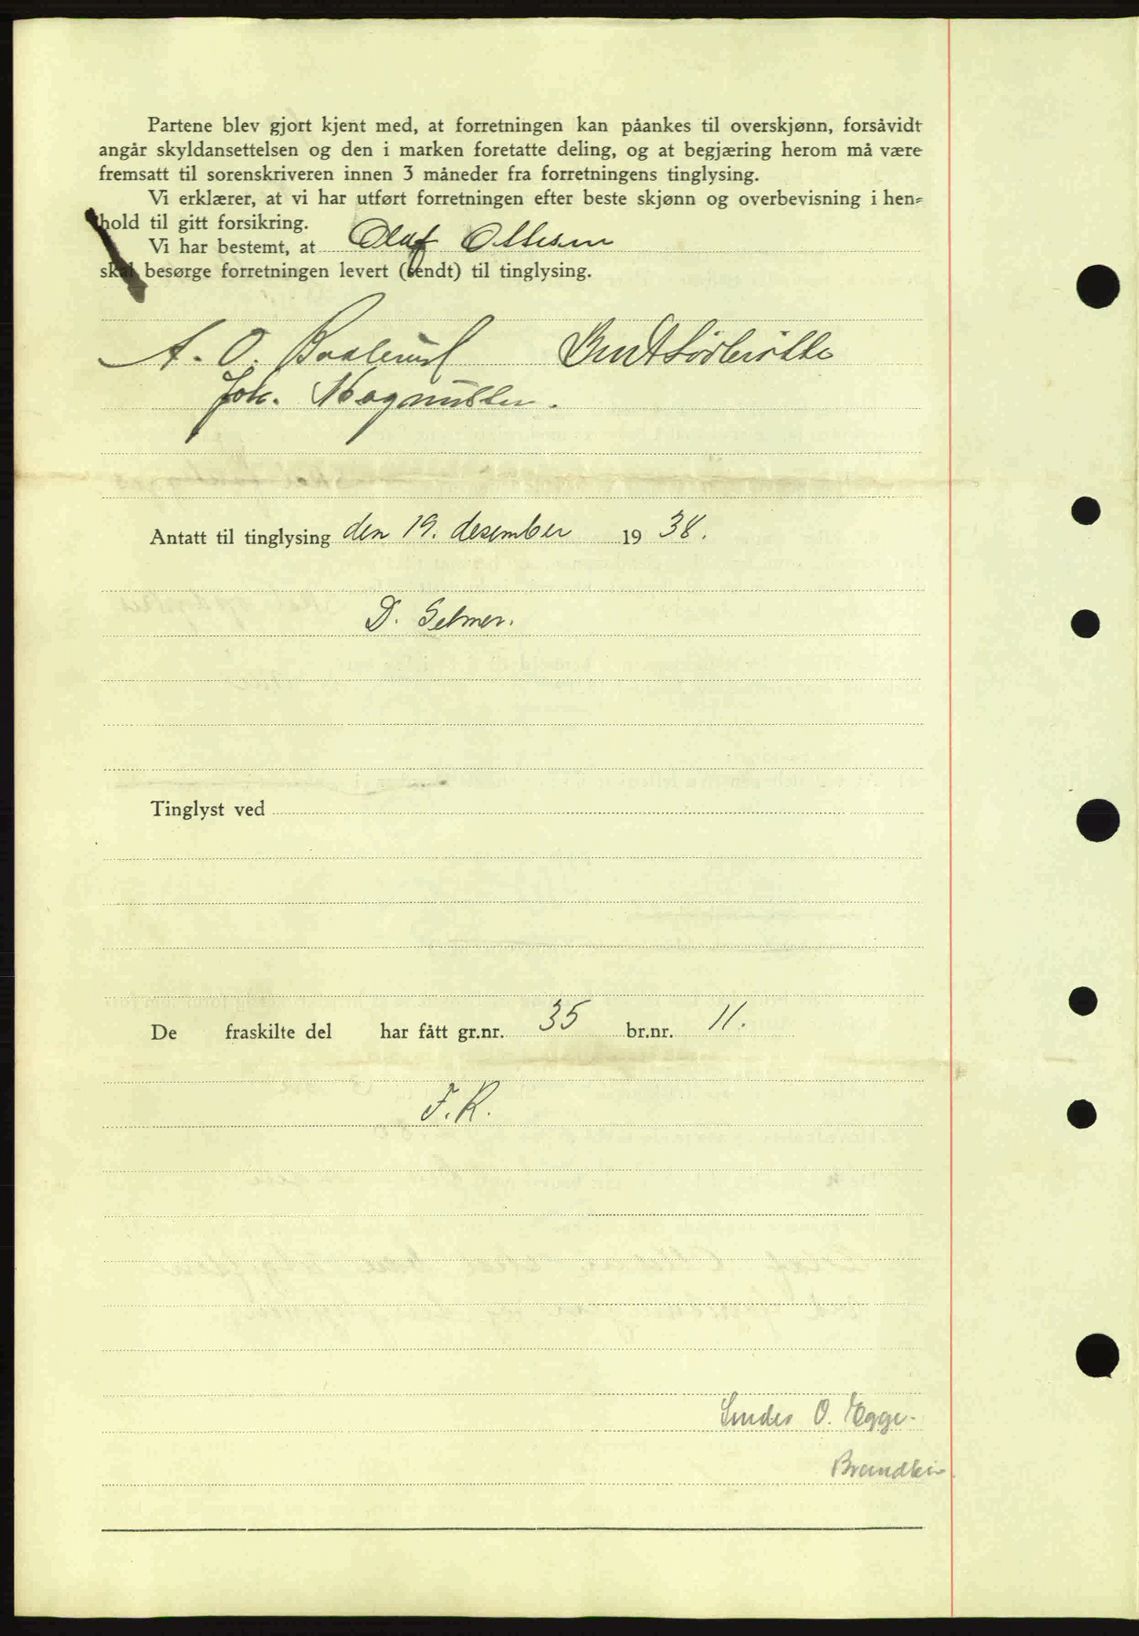 Partene blev gjort kjent med, at forretningen kan påankes til overskjønn, forsåvidt
angår skyldansettelsen og den i marken foretatte deling, og at begjæring herom må være
fremsatt til sorenskriveren innen 3 måneder fra forretningens tinglysing.
Vi erklærer, at vi har utført forretningen efter beste skjønn og overbevisning i hen-
hold til gitt forsikring.
Vi har bestemt, at Olaf Ottesen
skal besørge forretningen levert (sendt) til tinglysing.
A. O.
Joh. Magnussen.
Antatt til tinglysing den 19. desember 1938.
D. Selmer.
Tinglyst ved
De fraskilte del har fått gr.nr. 35 br.nr. 11.
F.R.
Sendes O. Egge.